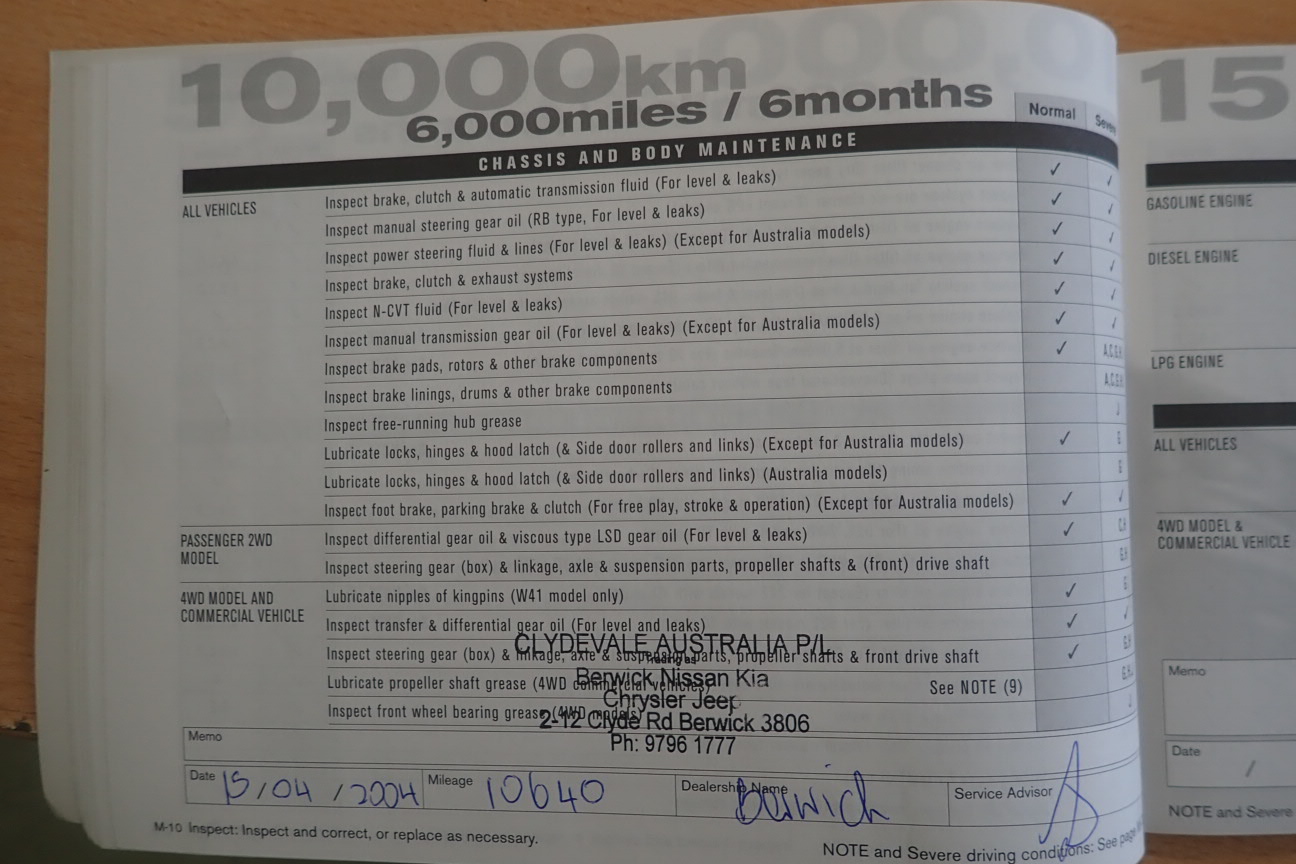 10,000km
6,000miles / 6months
Normal
CHASSIS AND BODY MAINTENANCE
ALL VEHICLES
Inspect brake, clutch & automatic transmission fluid (For level & leaks) ✓ ✓
Inspect manual steering gear oil (RB type, For level & leaks) ✓ ✓
Inspect power steering fluid & lines (For level & leaks) (Except for Australia models) ✓ ✓
Inspect brake, clutch & exhaust systems ✓ ✓
Inspect N-CVT fluid (For level & leaks) ✓ ✓
Inspect manual transmission gear oil (For level & leaks) (Except for Australia models) ✓ ✓
Inspect brake pads, rotors & other brake components ✓
Inspect brake linings, drums & other brake components
Inspect free-running hub grease
Lubricate locks, hinges & hood latch (& Side door rollers and links) (Except for Australia models) ✓
Lubricate locks, hinges & hood latch (& Side door rollers and links) (Australia models)
Inspect foot brake, parking brake & clutch (For free play, stroke & operation) (Except for Australia models) ✓ ✓
PASSENGER 2WD MODEL
Inspect differential gear oil & viscous type LSD gear oil (For level & leaks) ✓
Inspect steering gear (box) & linkage, axle & suspension parts, propeller shafts & (front) drive shaft
4WD MODEL AND COMMERCIAL VEHICLE
Lubricate nipples of kingpins (W41 model only) ✓
Inspect transfer & differential gear oil (For level and leaks) ✓ ✓
Inspect steering gear (box) & linkage, axle & suspension parts, propeller shafts & front drive shaft ✓
Lubricate propeller shaft grease (4WD commercial vehicles) See NOTE (9)
Inspect front wheel bearing grease (4WD models)
CLYDEVALE AUSTRALIA P/L
trading as
Berwick Nissan Kia
Chrysler Jeep
2-12 Clyde Rd Berwick 3806
Ph: 9796 1777
Memo
Date 15/04/2004
Mileage 10640
Dealership Name Berwick
Service Advisor
M-10 Inspect: Inspect and correct, or replace as necessary.
NOTE and Severe driving conditions: See page
15
GASOLINE ENGINE
DIESEL ENGINE
LPG ENGINE
ALL VEHICLES
4WD MODEL &
COMMERCIAL VEHICLE
Memo
Date /
NOTE and Severe